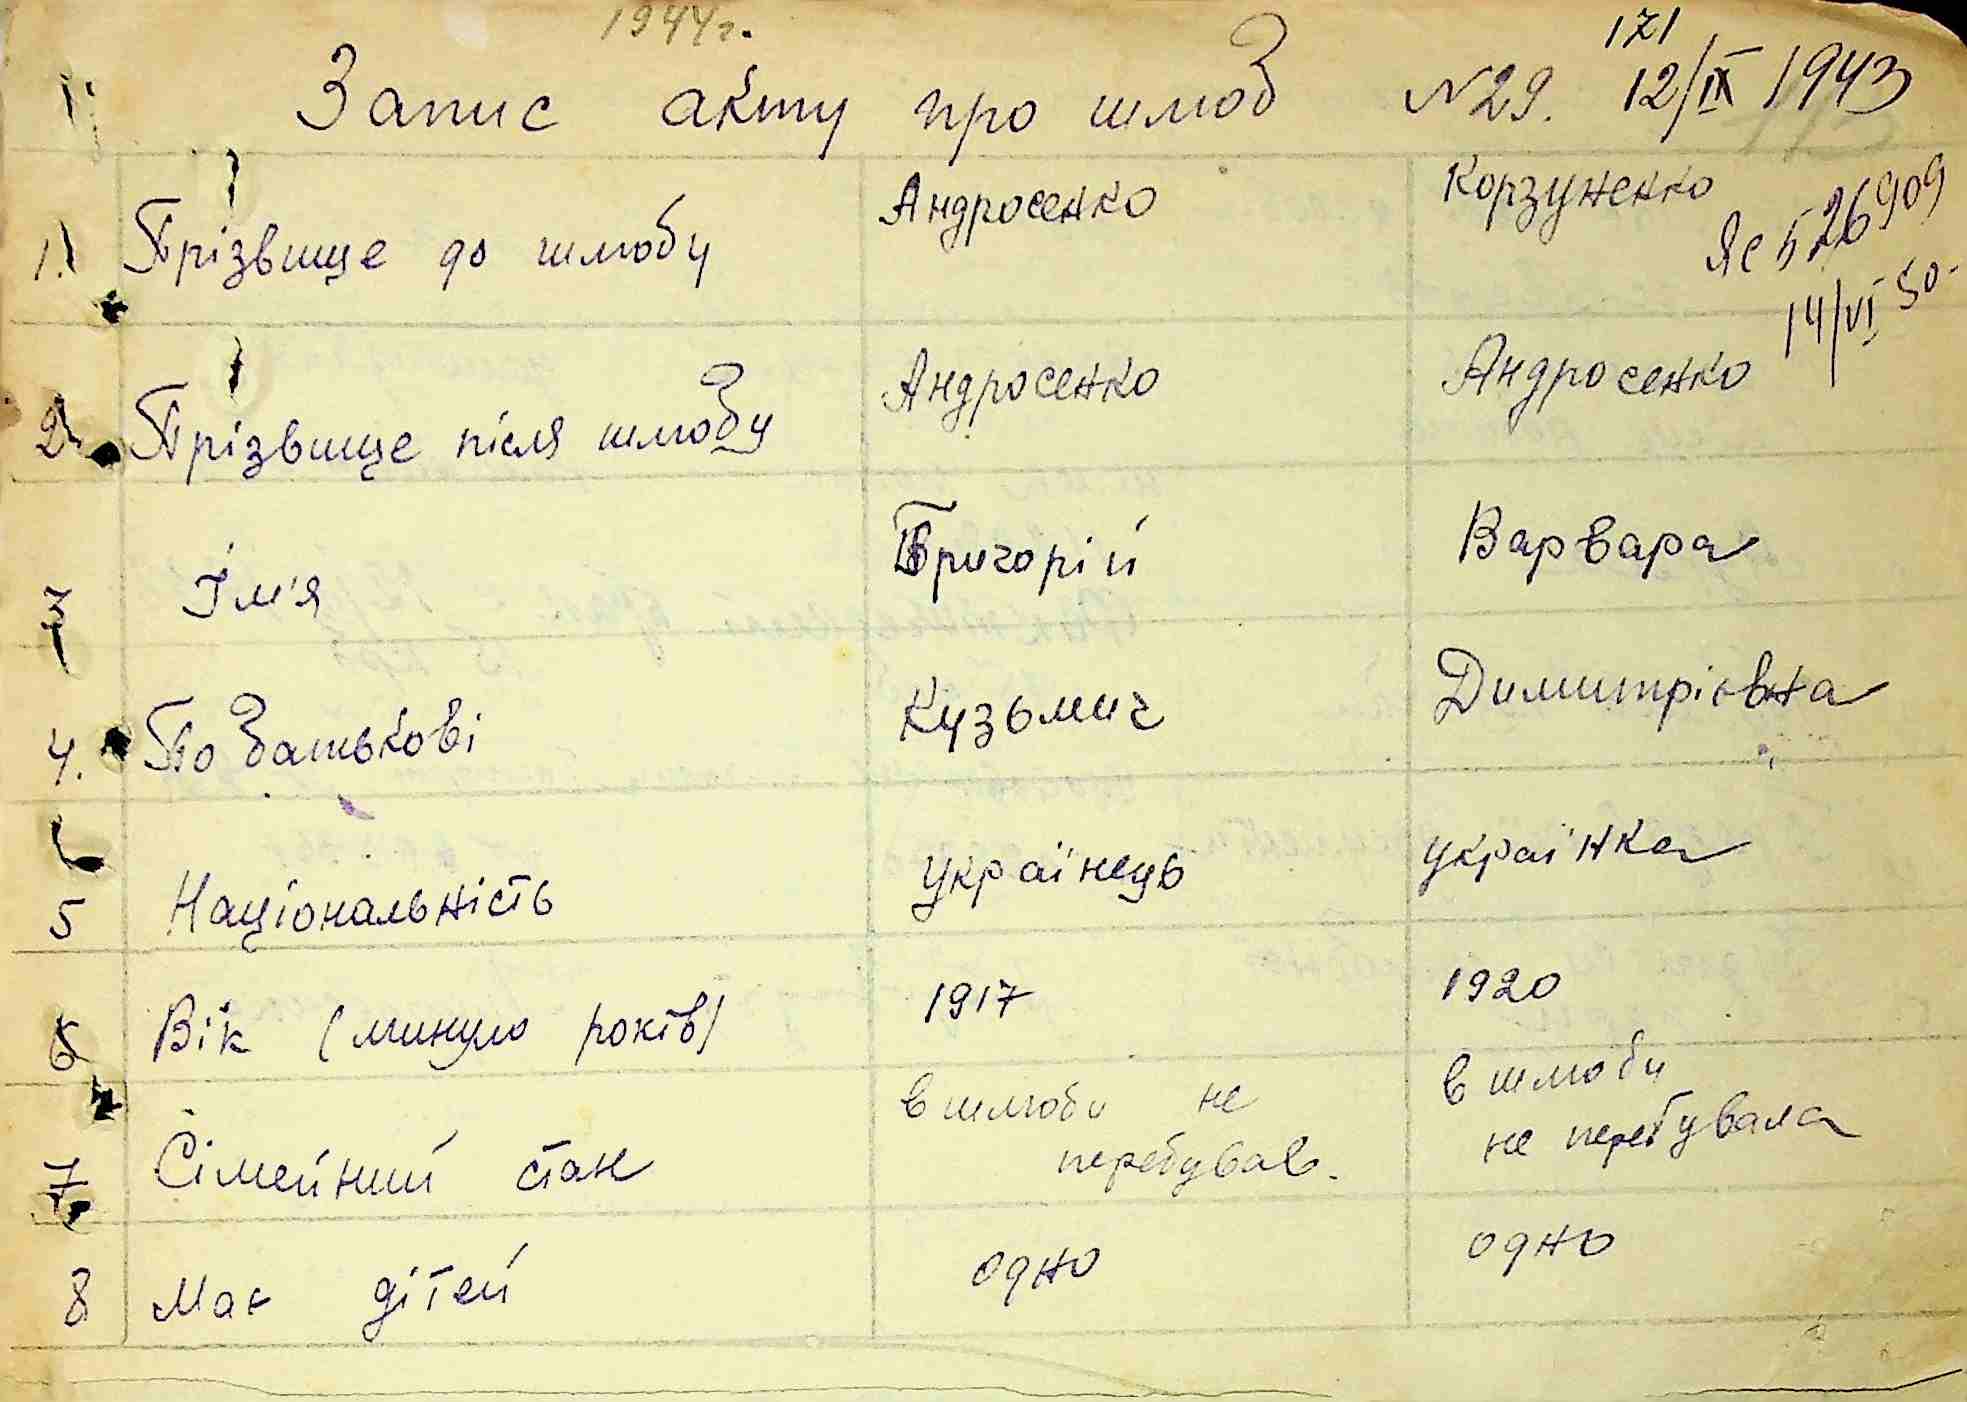 1944г.
171
Запис акту про шлюб №29. 12/IX 1943
1. Прізвище до шлюбу Андросенко Корзуненко
Яс 526909
14/VI 50.
2. Прізвище після шлюбу Андросенко Андросенко
3 Ім'я Григорій Варвара
4. По батькові Кузьмич Димитрієвна
5 Національність українець українка
6 Вік (минуло років) 1917 1920
7 Сімейний стан в шлюби не перебував. в шлюби не перебувала
8 Має дітей одно одно